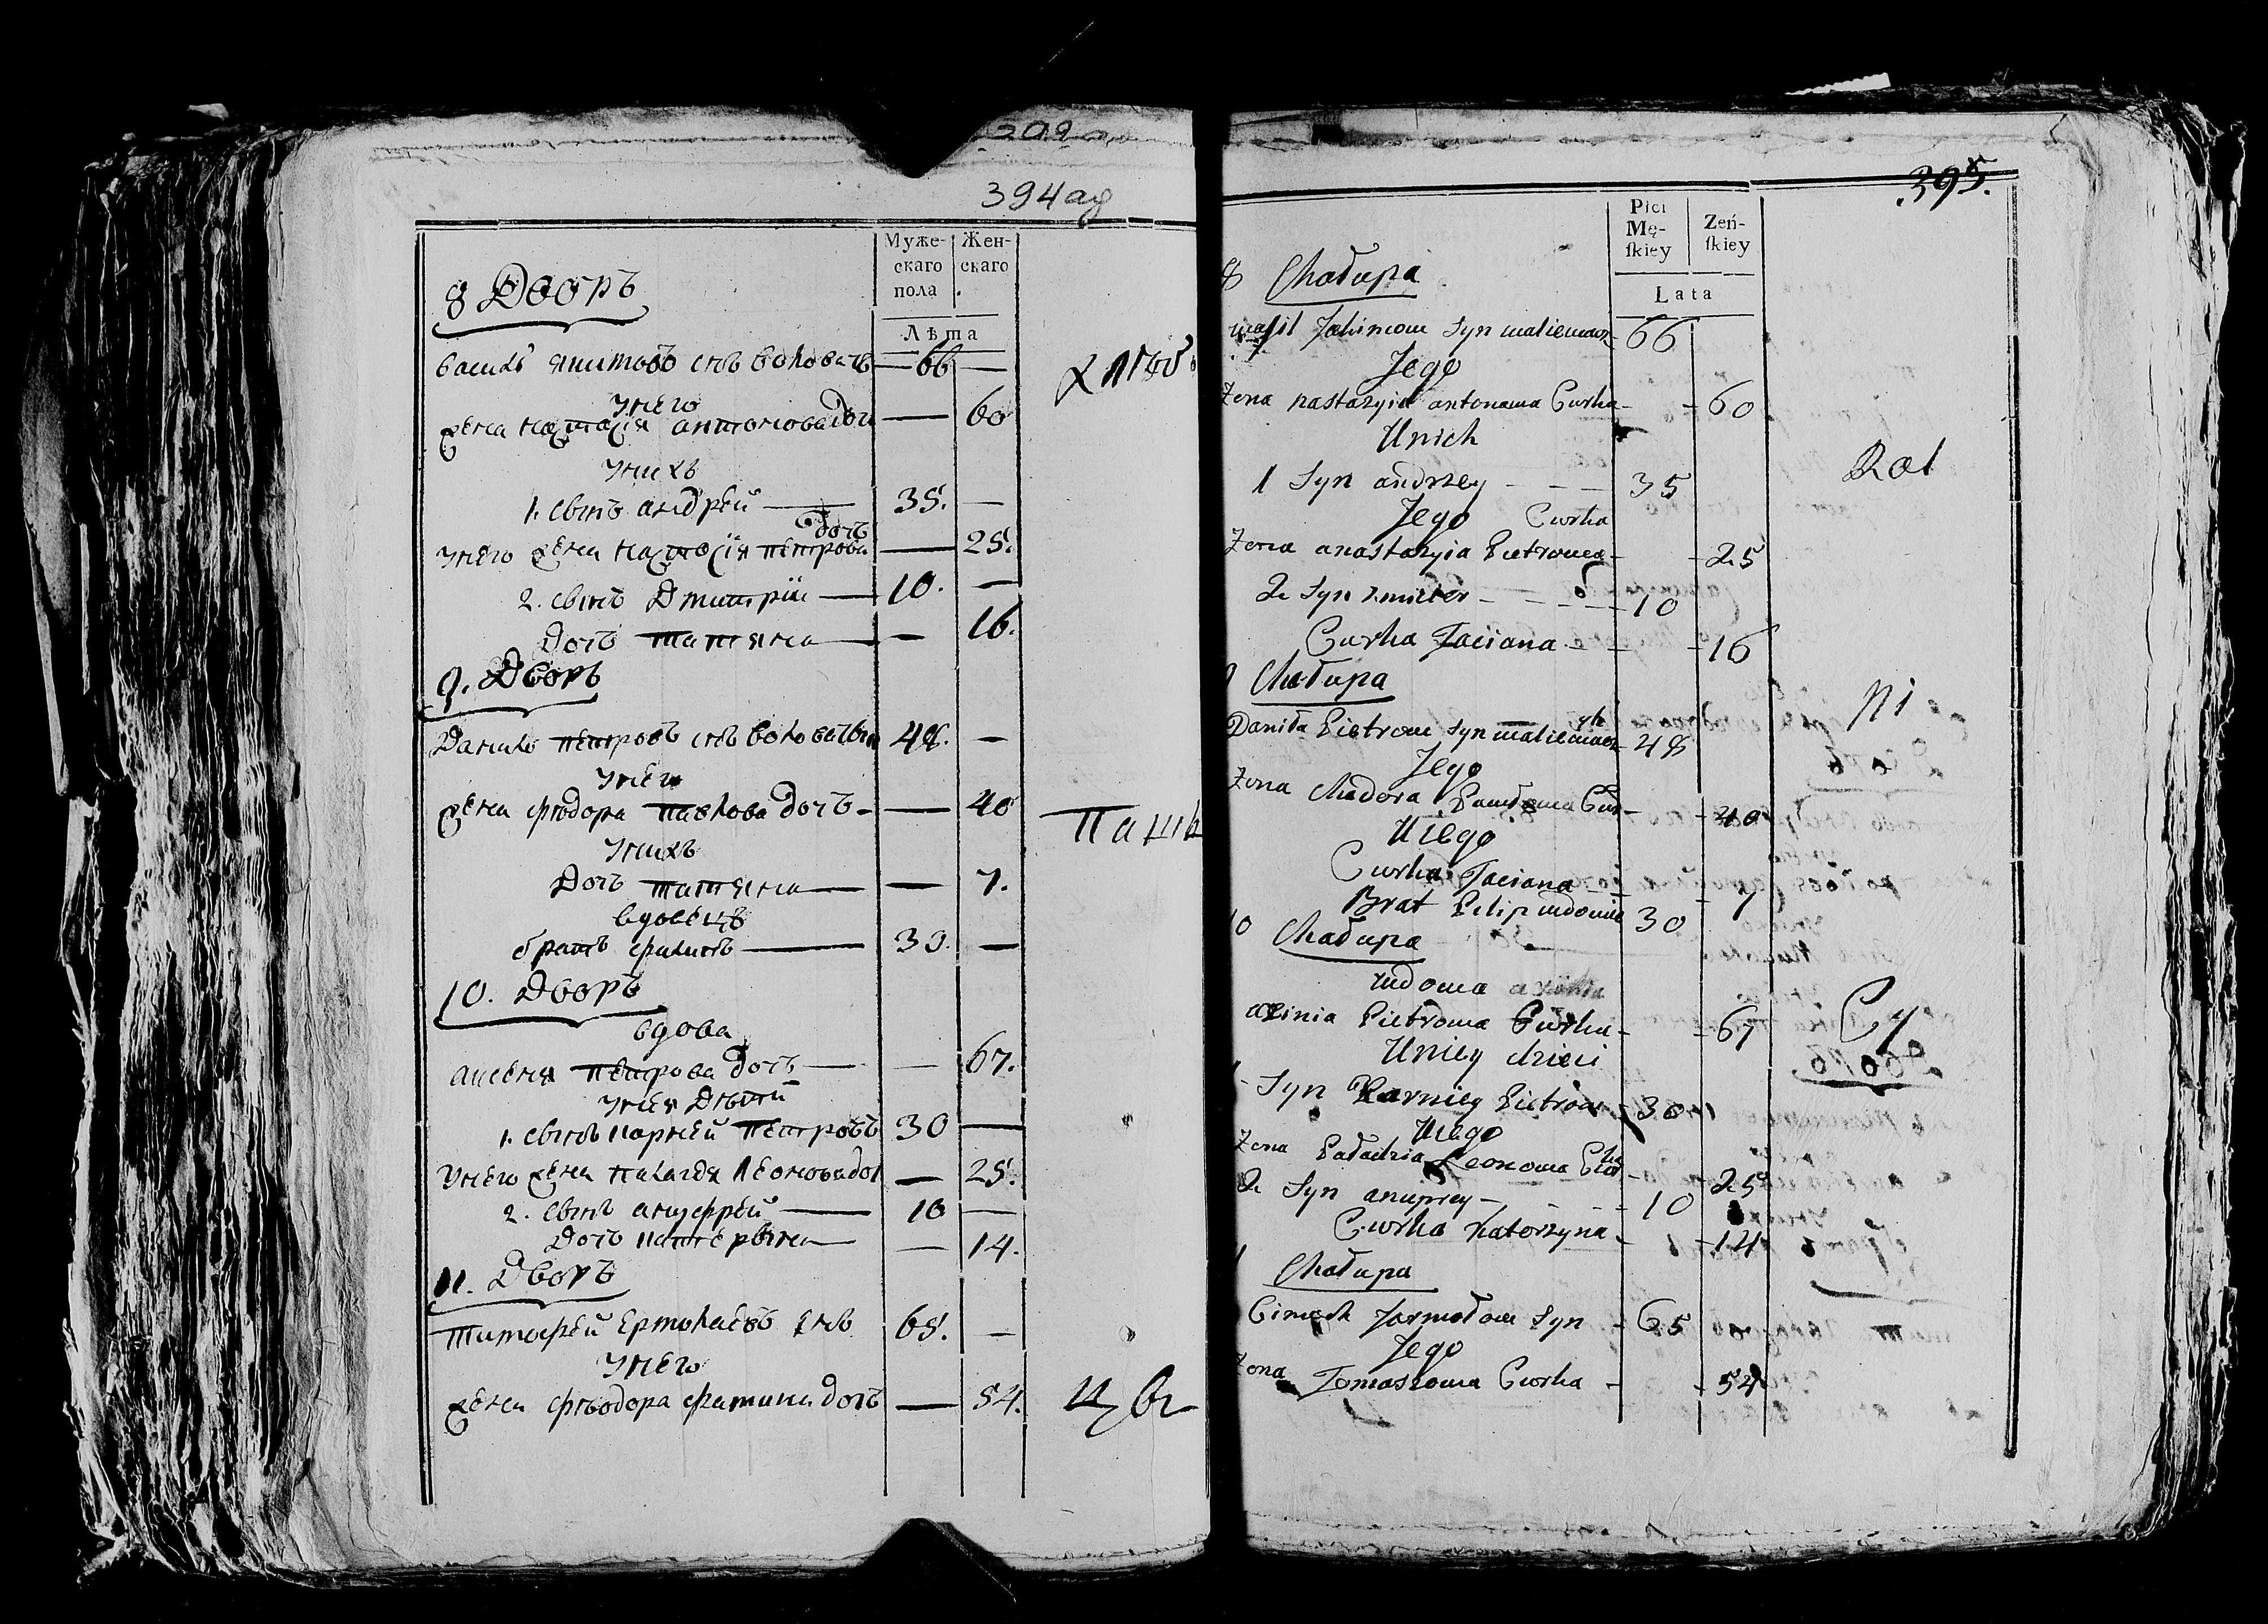 209
394 ад
Муже-
скаго
пола
Жен-
скаго
Лѣта
8 Дворъ
66
У него
жена антонова дочь 60
У нихъ
1. сынъ андрей 35.
У него жена петрова дочь 25.
2. сынъ Дмитрій 10.
Дочь татяна 16.
9. Дворъ
Данило петровъ 48.
У него
жена фѣдора павлова дочь 40
У нихъ
Дочь татяна 7.
вдовецъ
братъ филипъ 30.
10. Дворъ
вдова
аксеня петрова дочь 67.
У нея дѣти
1. сынъ карней петровъ 30
У него жена палагея леонова доч 25.
2. сынъ 10
Дочь катерына 14.
11. Дворъ
Тимофей Ермолаевъ снъ 65.
У него
жена фѣодора фамина дочь 54.
395.
Płci
Mę-
ſkiey
Zeń-
ſkiey
Lata
8 Chałupa
Syn 66
Jego
Zona nastazyia antonowa Curka 60
Unich
1 Syn andrzey 35
Jego Curka
Zona anastazyia Pietrowa 25
2 Syn 10
Curka Taciana 16
Chałupa
Daniła Pietrow Syn 48
Jego
Zona Chadora Cur 40
Uiego
Curka Taciana 7
Brat Filip wdowiec 30
10 Chałupa
wdowa
axinia Pietrowa Curka 67
Uniey dzieci
Syn Karniey Pietrow 30
Uiego
Zona Pałachia Leonowa Curka 25
2 Syn anuprey 10
Curka Katorzyna 14
Chałupa
Cimoch Jarmołow Syn 65
Jego
Zona Tomaszowa Curka 54